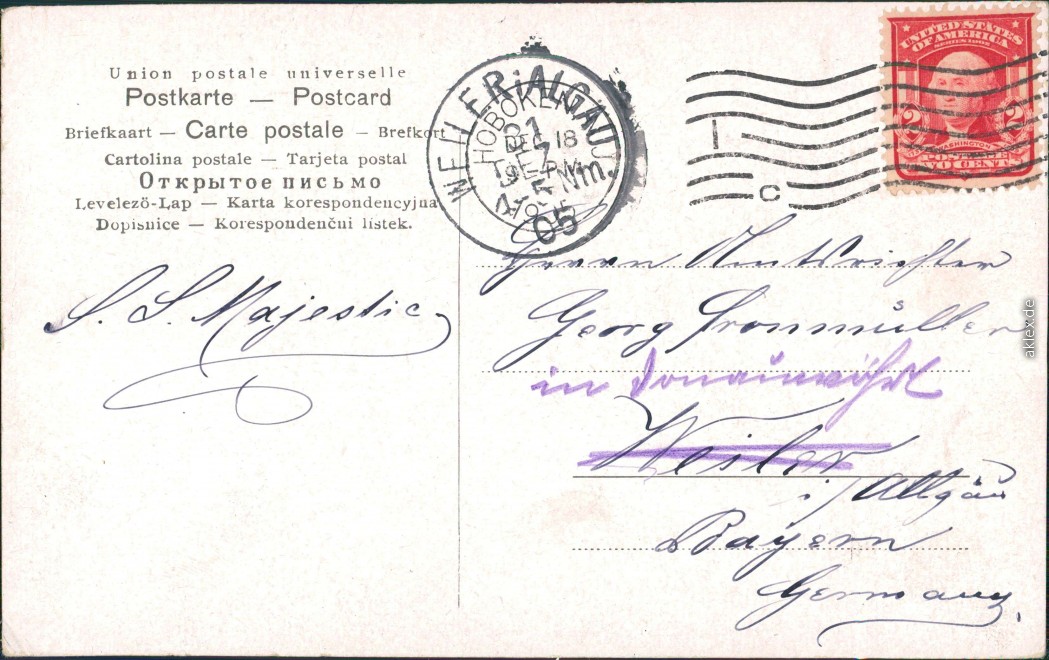 Union postale universelle
Postkarte — Postcard
Briefkaart — Carte postale — Brefkort
Cartolina postale — Tarjeta postal
Открытое письмо
Levelezö-Lap — Karta korespondencyjna
Dopisnice — Korespondenční lístek.
WEILER i. ALGÄU
HOBOKEN
21
DEC 18
9 PM
DEZ
4-5 Nm.
05
1
C
UNITED STATES
OF AMERICA
SERIES 1902
2 2
WASHINGTON
POSTAGE
TWO CENTS
S. S. Majestic
Herrn Amtsrichter
Georg Fronmüller
in Donauwöhrt
Weiler
i/ Allgäu
Bayern
Germany.
aklex.de